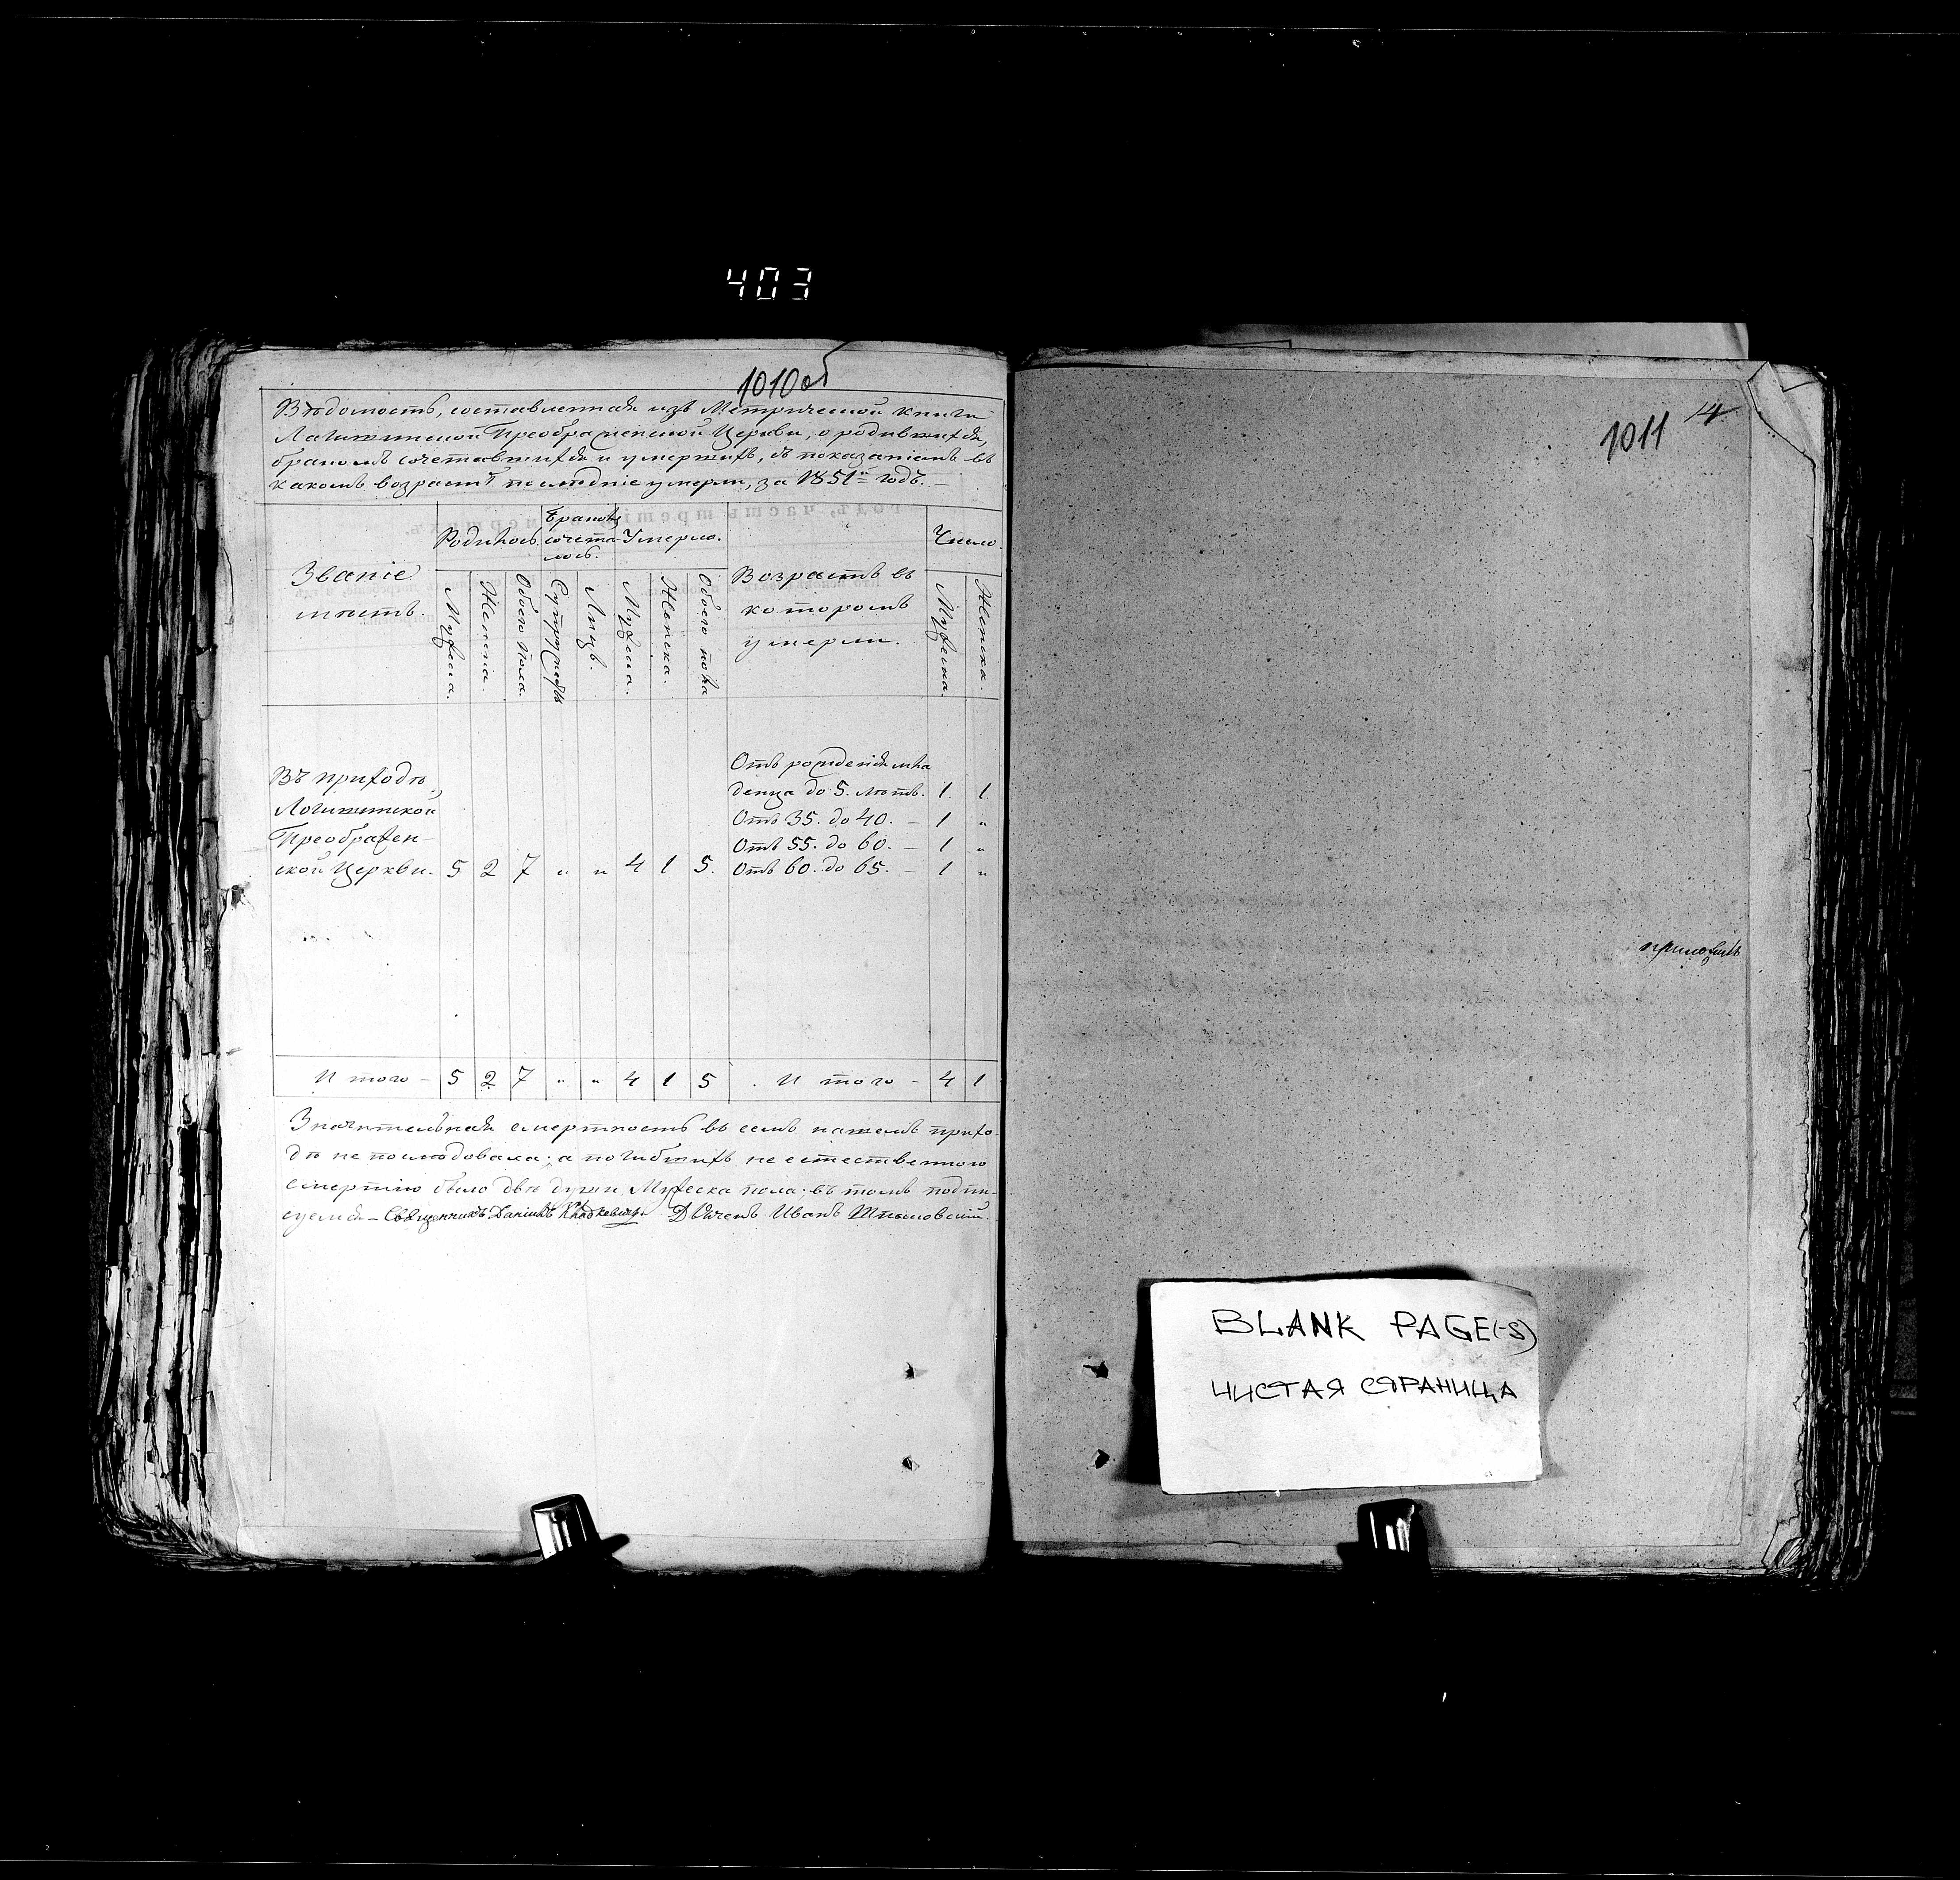 403
1010об
Вѣдомость, составленная изъ Метрической книги
Логишинской Преображенской Церкви, о родившихся,
бракомъ сочетавшихся и умершихъ, съ показаніемъ въ
какомъ возрастѣ послѣдніе умерли, за 1851й годъ. —
Званіе мѣстъ.
Родилось.
Бракомъ сочеталось.
Умерло.
Возрастъ въ которомъ умерли.
Число.
Мужеска. Женска. Обоего пола. Супружествъ Лицъ. Мужеска. Женска. Обоего пола Мужеска. Женска.
Въ приходѣ
Логишинской
Преображен-
ской Церкви. 5 2 7 „ „ 4 1 5.
Отъ рожденія мла
денца до 5. лѣтъ. 1. 1
Отъ 35. до 40. — 1 „
Отъ 55. до 60. — 1 „
Отъ 60. до 65. — 1 „
Итого — 5 2 7 „ „ 4 1 5 . Итого — 4 1
Значительная смертность въ семъ нашемъ прихо-
дѣ не послѣдовала; а погибшихъ не естественною
смертію было двѣ души Мужеска пола; въ томъ подпи-
суемся — Священникъ Даніилъ Дьячекъ Иванъ
1011 14
BLANK PAGE(-S)
ЧИСТАЯ СТРАНИЦА